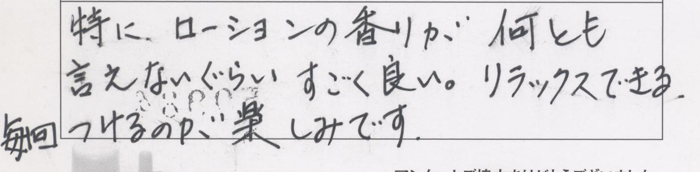 特に、ローションの香りが 何とも
言えないぐらい すごく良い。リラックスできる.
毎回 つけるのが 楽しみです.